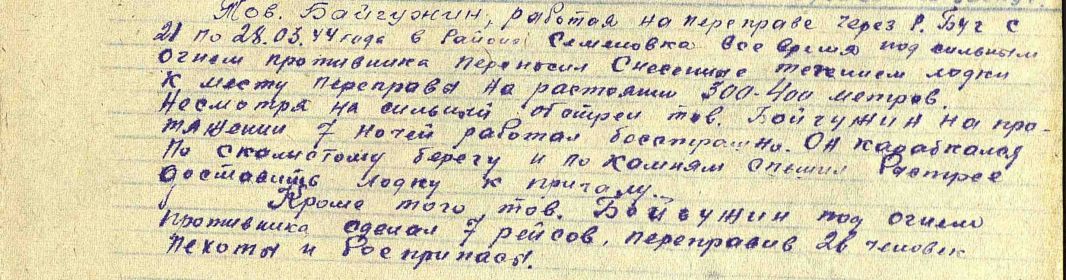 Тов. Байгужин, работая на переправе через р. Буг с
21 по 28.03.44 года в районе Семеновка все время под сильным
огнем противника переносил снесенные течением лодки
к месту переправы на растояни 300-400 метров.
Несмотря на сильный обстрел тов. Байгужин на про-
тяжении 7 ночей работал бесстрашно. Он карабкался
по скалистому берегу и по камням спешил быстрее
доставить лодку к причалу.
Кроме того тов. Байгужин под огнем
противника сделал 7 рейсов, переправив 28 человек
пехоты и боеприпасы.